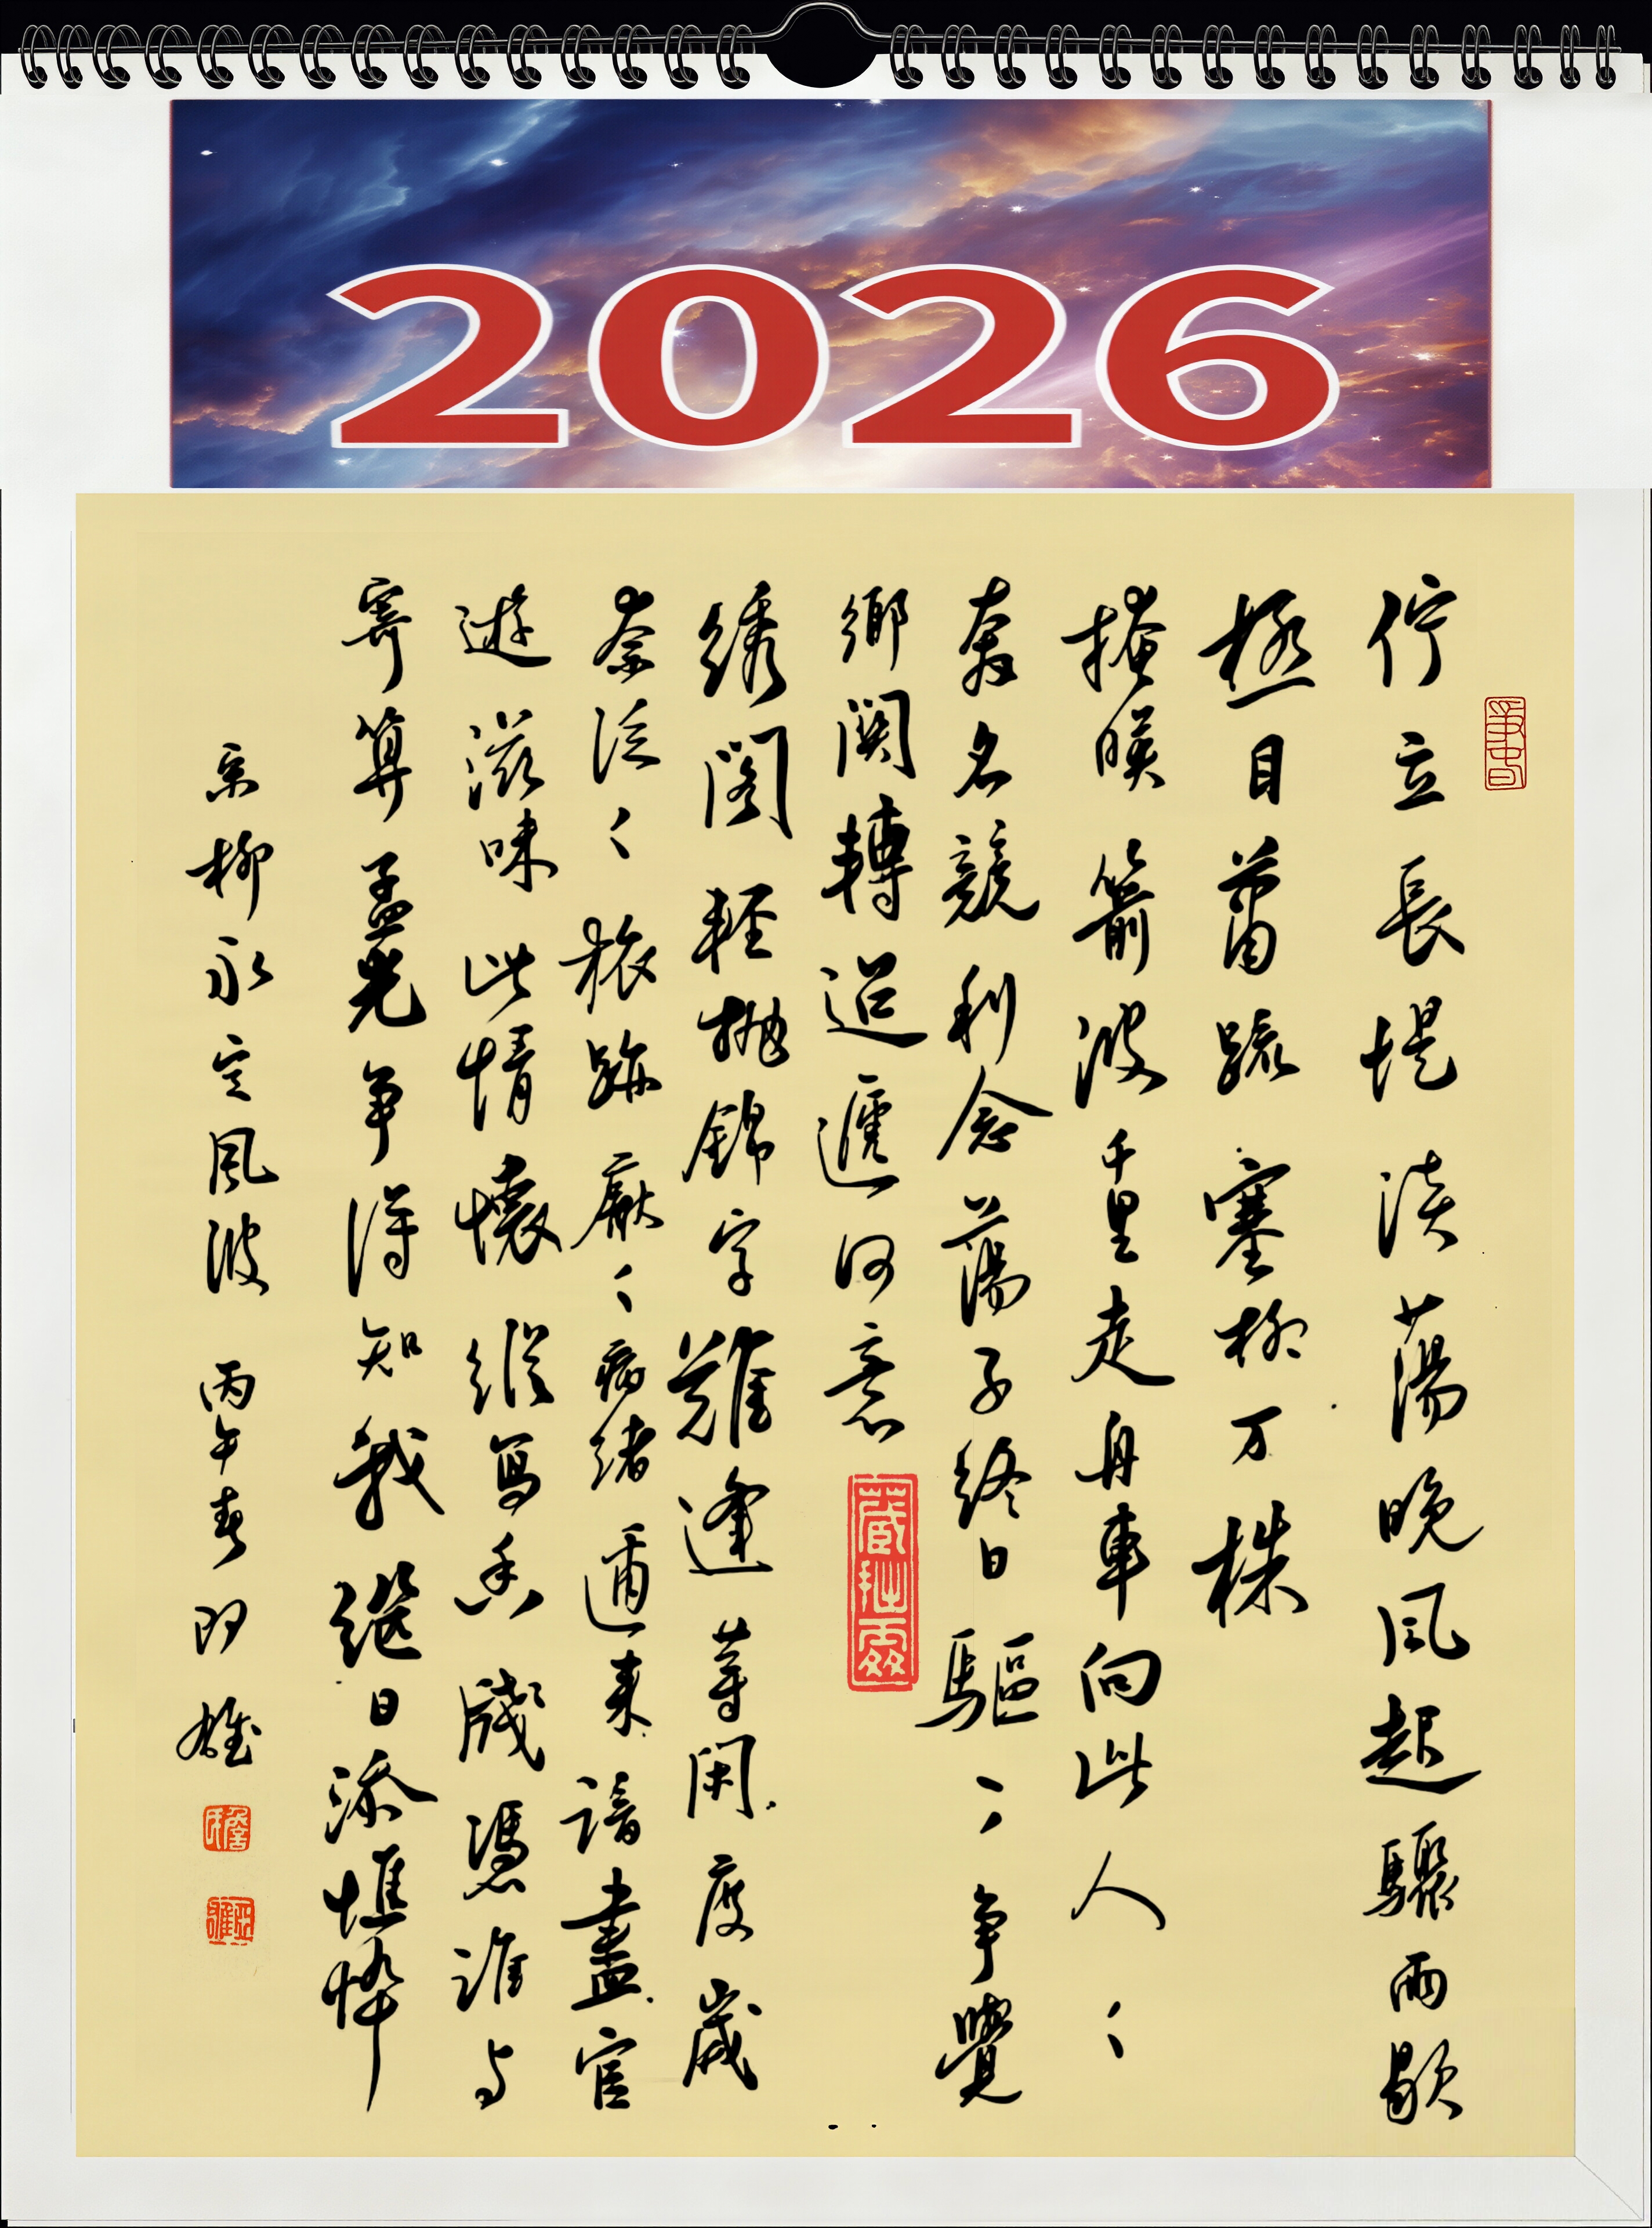 2026
佇立長堤淡蕩晚風起驟雨歇
極目蕭踈塞柳万株
掩暎箭波千里走舟車向此人々
奔名競利念蕩子終日驅々争覺
鄉関轉迢遞何意
藏拙齋
綉閣輕抛錦字難逢等閑度歲
奈泛々旅跡厭々病緒邇來諳盡宦
遊滋味此情懷縱寫香牋憑誰与
寄算孟光争得知我繼日添憔悴
宋柳永定風波 丙午春 雄
詹氏